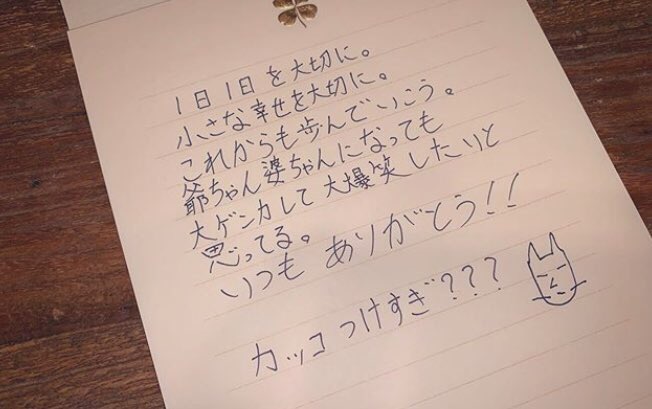 1日1日を大切に。
小さな幸せを大切に。
これからも歩んでいこう。
爺ちゃん婆ちゃんになっても
大ゲンカして大爆笑したいと
思ってる。
いつもありがとう!!
カッコつけすぎ???